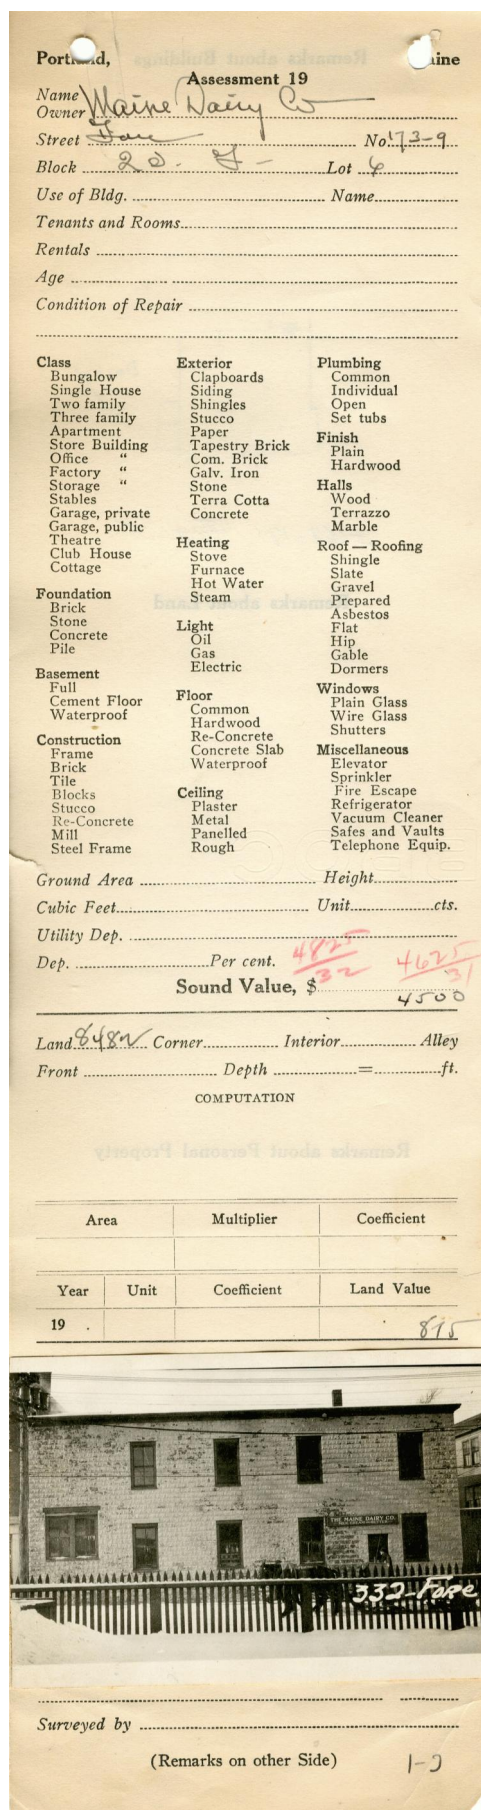 Portland, Maine
Assessment 19
Name
Owner Maine Dairy Co
Street Fore No. 173-9
Block 20. F - Lot 6
Use of Bldg. Name
Tenants and Rooms
Rentals
Age
Condition of Repair
Class
Bungalow
Single House
Two family
Three family
Apartment
Store Building
Office "
Factory "
Storage "
Stables
Garage, private
Garage, public
Theatre
Club House
Cottage
Foundation
Brick
Stone
Concrete
Pile
Basement
Full
Cement Floor
Waterproof
Construction
Frame
Brick
Tile
Blocks
Stucco
Re-Concrete
Mill
Steel Frame
Exterior
Clapboards
Siding
Shingles
Stucco
Paper
Tapestry Brick
Com. Brick
Galv. Iron
Stone
Terra Cotta
Concrete
Heating
Stove
Furnace
Hot Water
Steam
Light
Oil
Gas
Electric
Floor
Common
Hardwood
Re-Concrete
Concrete Slab
Waterproof
Ceiling
Plaster
Metal
Panelled
Rough
Plumbing
Common
Individual
Open
Set tubs
Finish
Plain
Hardwood
Halls
Wood
Terrazzo
Marble
Roof — Roofing
Shingle
Slate
Gravel
Prepared
Asbestos
Flat
Hip
Gable
Dormers
Windows
Plain Glass
Wire Glass
Shutters
Miscellaneous
Elevator
Sprinkler
Fire Escape
Refrigerator
Vacuum Cleaner
Safes and Vaults
Telephone Equip.
Ground Area Height
Cubic Feet Unit cts.
Utility Dep.
Dep. Per cent. 4825/32 4625/31
Sound Value, $ 4500
Land 8482 Corner Interior Alley
Front Depth = ft.
COMPUTATION
Area Multiplier Coefficient
Year Unit Coefficient Land Value
19 . 815
THE MAINE DAIRY CO.
332-Fore
Surveyed by
(Remarks on other Side)